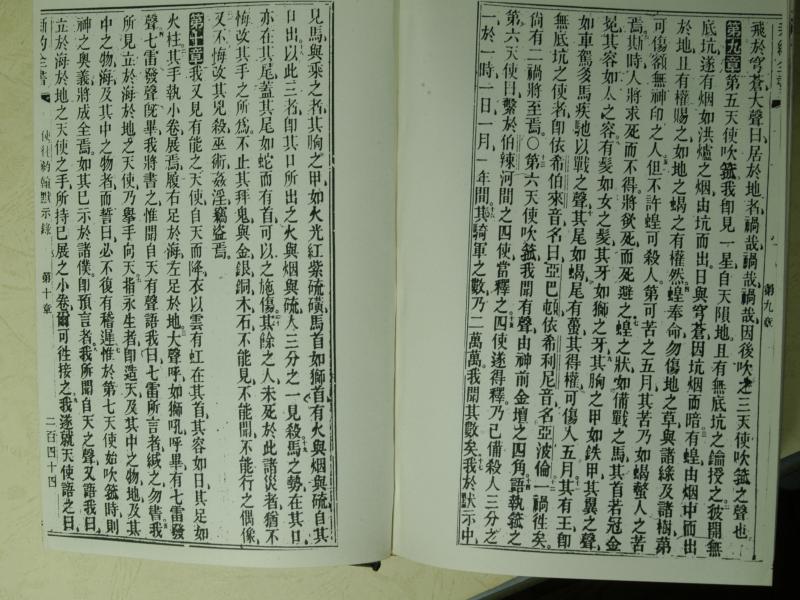 飛於穹蒼大聲曰居於地者禍哉禍哉禍哉因後吹之三天使吹箛之聲也
第九章 第五天使吹箛我即見一星自天隕地且有無底坑之鑰授之彼開無
底坑遂有烟如洪爐之烟由坑而出日與穹蒼因坑烟而暗有蝗由烟中而出
於地且有權賜之如地之蝎之有權然蝗奉命勿傷地之草與諸綠及諸樹第
可傷額無神印之人但不許蝗可殺人第可苦之五月其苦乃如蝎螫人之苦
焉斯時人將求死而不得將欲死而死避之蝗之狀如備戰之馬其首若冠金
冕其容如人之容有髮如女之髮其牙如獅之牙其胸之甲如鉄甲其翼之聲
如車駕多馬疾馳以戰之聲其尾如蝎尾有螫其得權可傷人五月其有王即
無底坑之使者即依希伯來音名曰亞巴頓依希利尼音名亞波倫一禍徃矣
尚有二禍將至焉○第六天使吹箛我聞有聲由神前金壇之四角語執箛之
第六天使曰繫於伯辣河間之四使當釋之四使遂得釋乃已備殺人三分之
一於一時一日一月一年間其騎軍之數乃二萬萬我聞其數矣我於默示中
第九章
見馬與乘之者其胸之甲如火光紅紫硫磺馬首如獅首有火與烟與硫自其
口出以此三者即其口所出之火與烟與硫人三分之一見殺馬之勢在其口
亦在其尾蓋其尾如蛇而有首可以之施傷其餘之人未死於此諸災者猶不
悔改其手之所為不止其拜鬼與金銀銅木石不能見不能聞不能行之偶像
又不悔改其兇殺巫術姦淫竊盜焉
第十章 我又見有能之天使自天而降衣以雲有虹在其首其容如日其足如
火柱其手執小卷展焉履右足於海左足於地大聲呼如獅吼呼畢有七雷發
聲七雷發聲旣畢我將書之惟聞自天有聲語我曰七雷所言者緘之勿書我
所見立於海於地之天使乃擧手向天指永生者即造天及其中之物地及其
中之物海及其中之物者而誓曰必不復有稽遲惟於第七天使始吹箛時則
神之奧義將成全焉如其已示於諸僕即預言者我所聞自天之聲又語我曰
立於海於地之天使之手所持已展之小卷爾可徃接之我遂就天使語之曰
新約全書 使徒約翰默示錄 第十章 二百四十四